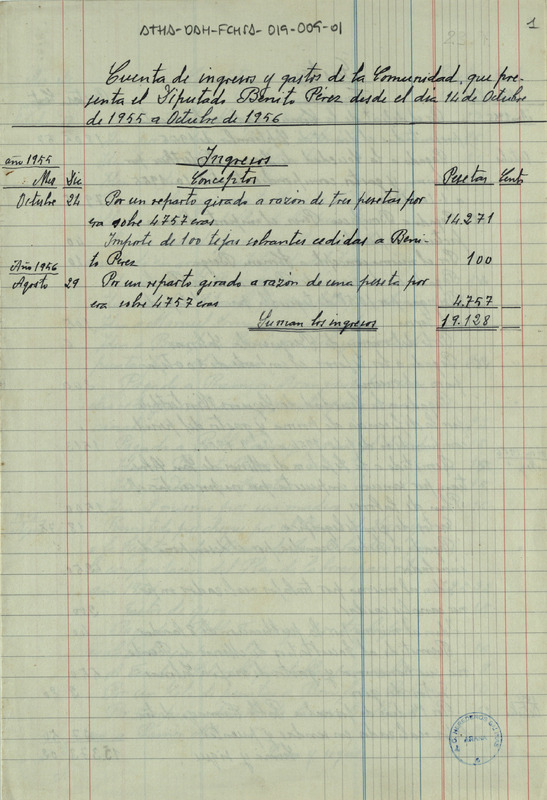 ATHA-DAH-FCHSA-019-009-01
1
Cuenta de ingresos y gastos de la Comunidad, que pre-
senta el Diputado Benito Pérez desde el dia 14 de Octubre
de 1955 a Octubre de 1956
Ingresos
año 1955
Mes Dia Conceptos Pesetas Cents
Octubre 24 Por un reparto girado a razón de tres pesetas por
era sobre 4757 eras 14.271
Importe de 100 tejas sobrantes cedidas a Beni-
to Pérez 100
Año 1956
Agosto 29 Por un reparto girado a razón de una peseta por
era sobre 4757 eras 4.757
Suman los ingresos 19.128